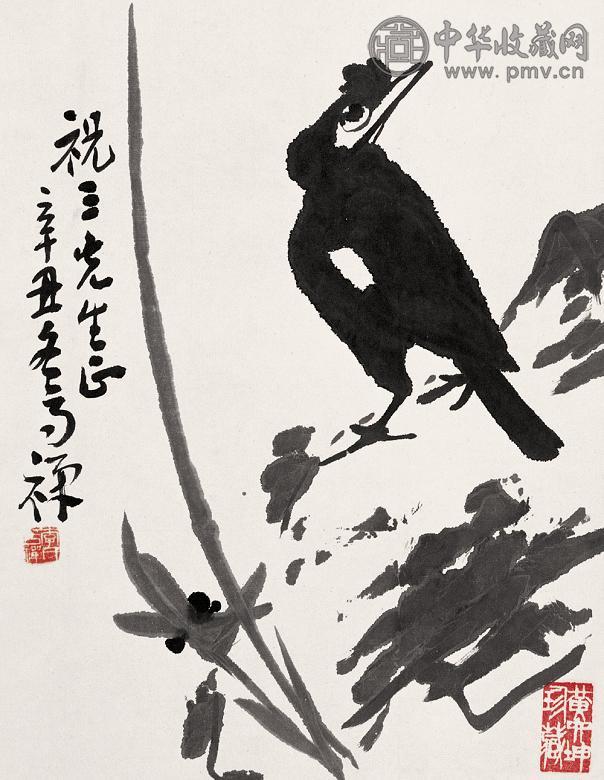 中华收藏网
www.pmv.cn
祝三先生正
辛丑冬苦禅